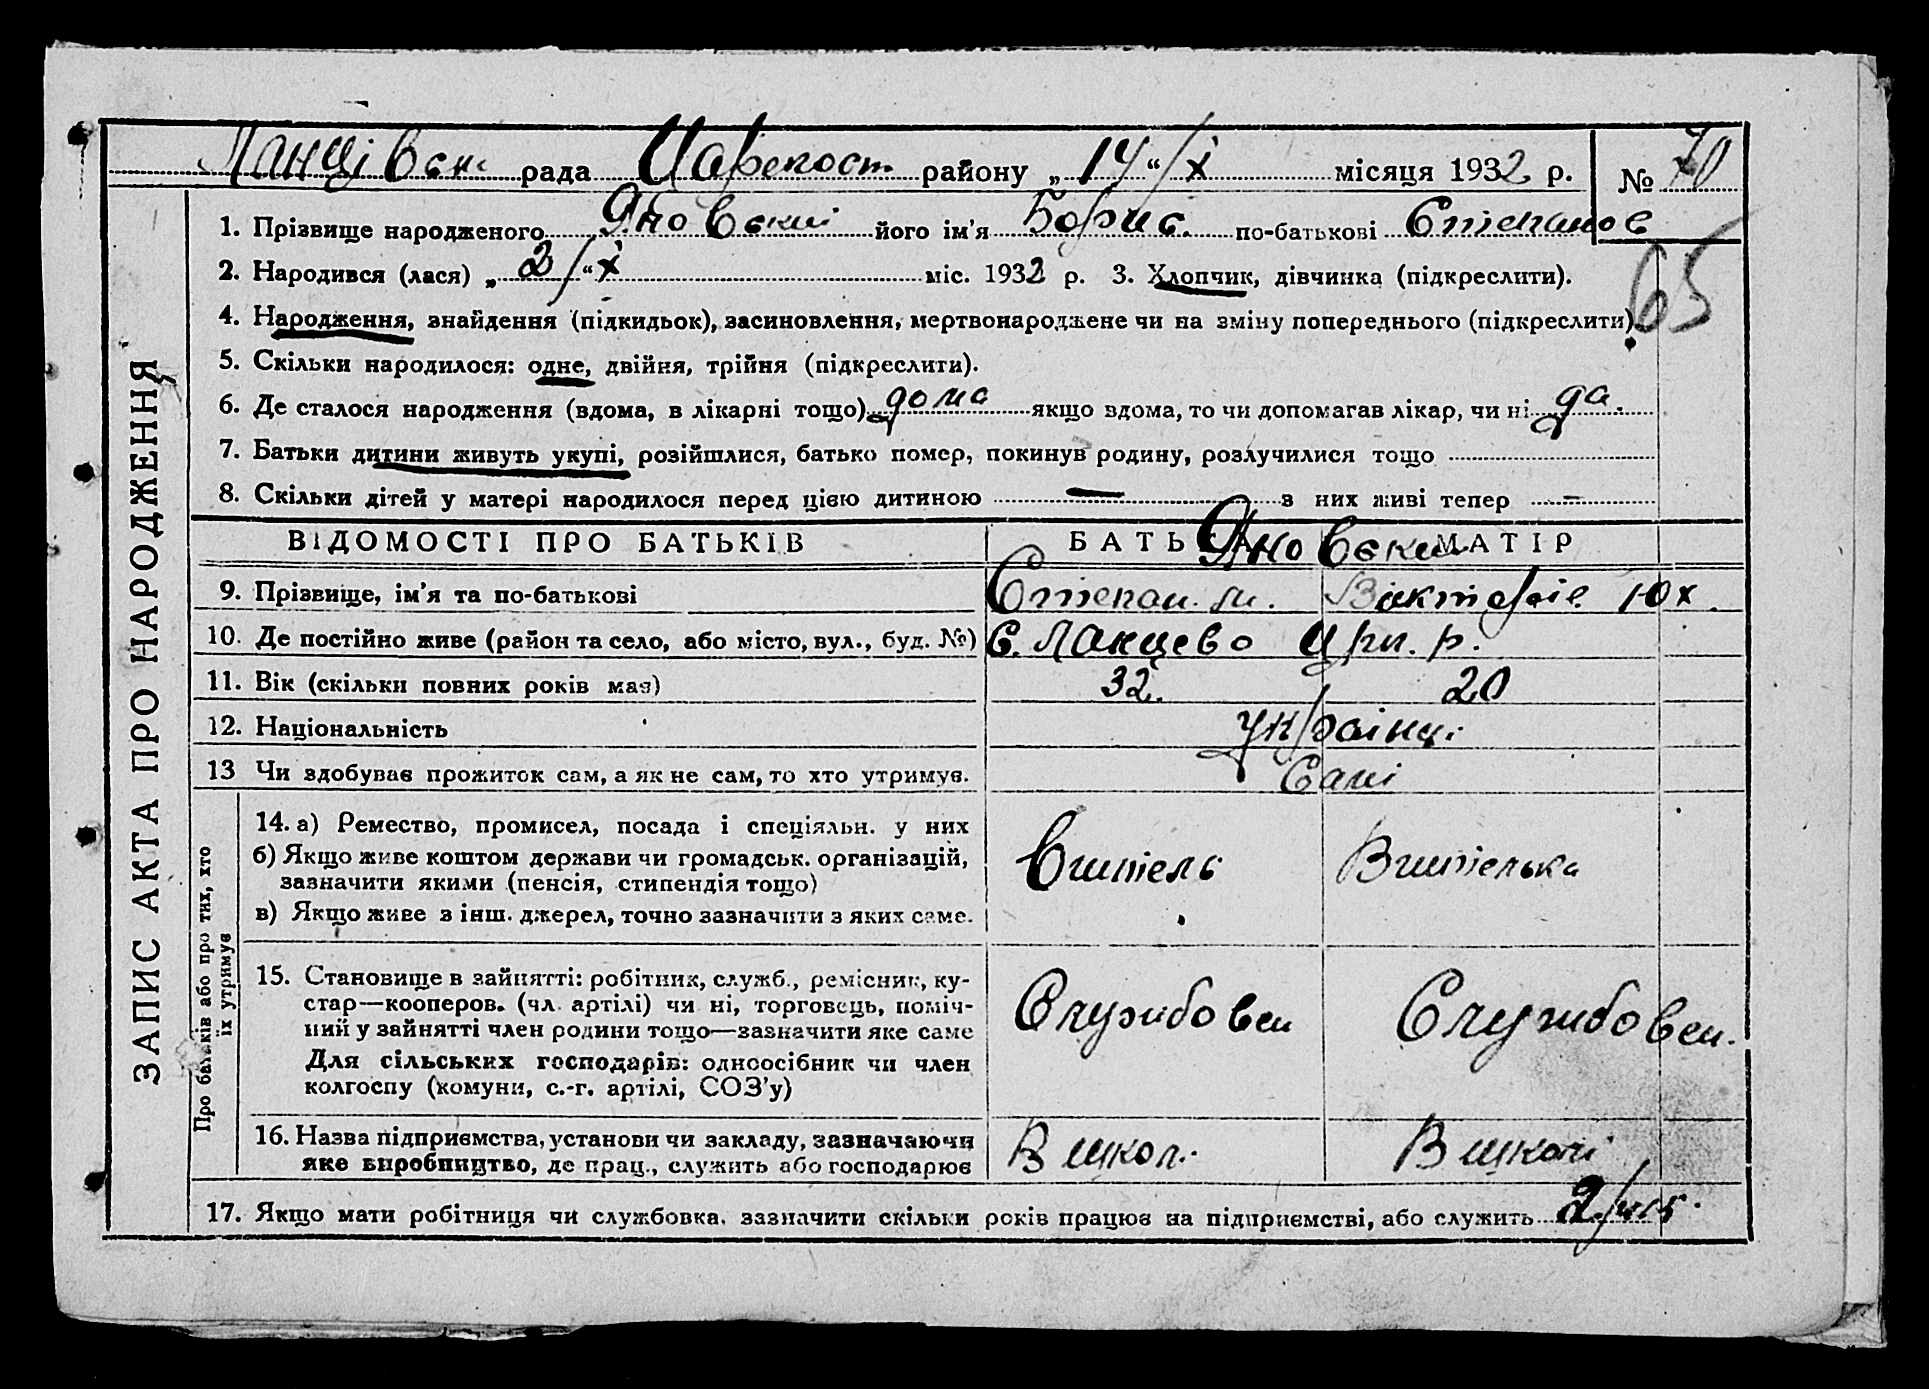 Ланцівськ рада Чарепост. району „ 14 “ / X місяця 1932 р. № 70
1. Прізвище народженого Яновский його ім'я Борис. по-батькові Степанов
2. Народився (лася) „ 2 /“ X міс. 1932 р. 3. Хлопчик, дівчинка (підкреслити).
65
4. Народження, знайдення (підкидьок), засиновлення, мертвонароджене чи на зміну попереднього (підкреслити).
5. Скільки народилося: одне, двійня, трійня (підкреслити).
6. Де сталося народження (вдома, в лікарні тощо) дома якщо вдома, то чи допомагав лікар, чи ні да.
7. Батьки дитини живуть укупі, розійшлися, батько помер, покинув родину, розлучилися тощо
8. Скільки дітей у матері народилося перед цією дитиною — з них живі тепер —
ЗАПИС АКТА ПРО НАРОДЖЕННЯ
ВІДОМОСТІ ПРО БАТЬКІВ БАТЬКА МАТІР
Яновськи
9. Прізвище, ім'я та по-батькові Степан. М. Вікторіє Юх.
10. Де постійно живе (район та село, або місто, вул., буд. №) с. Ланцево Црп. р.
11. Вік (скільки повних років має) 32. 20
12. Національність українці
13 Чи здобуває прожиток сам, а як не сам, то хто утримує. Самі
Про батьків або про тих, хто
їх утримує
14. а) Ремество, промисел, посада і спеціяльн. у них
б) Якщо живе коштом держави чи громадськ. організацій,
зазначити якими (пенсія, стипендія тощо)
Вчитель Вчителька
в) Якщо живе з інш. джерел, точно зазначити з яких саме.
15. Становище в зайнятті: робітник, служб., ремісник, ку-
стар—кооперов. (чл. артілі) чи ні, торговець, поміч-
ний у зайнятті член родини тощо—зазначити яке саме
Службовец Службовец.
Для сільських господарів: одноосібник чи член
колгоспу (комуни, с.-г. артілі, СОЗ'у)
16. Назва підприємства, установи чи закладу, зазначаючи
яке виробництво, де прац., служить або господарює
В школ. В школі
17. Якщо мати робітниця чи службовка, зазначити скільки років працює на підприємстві, або служить 2